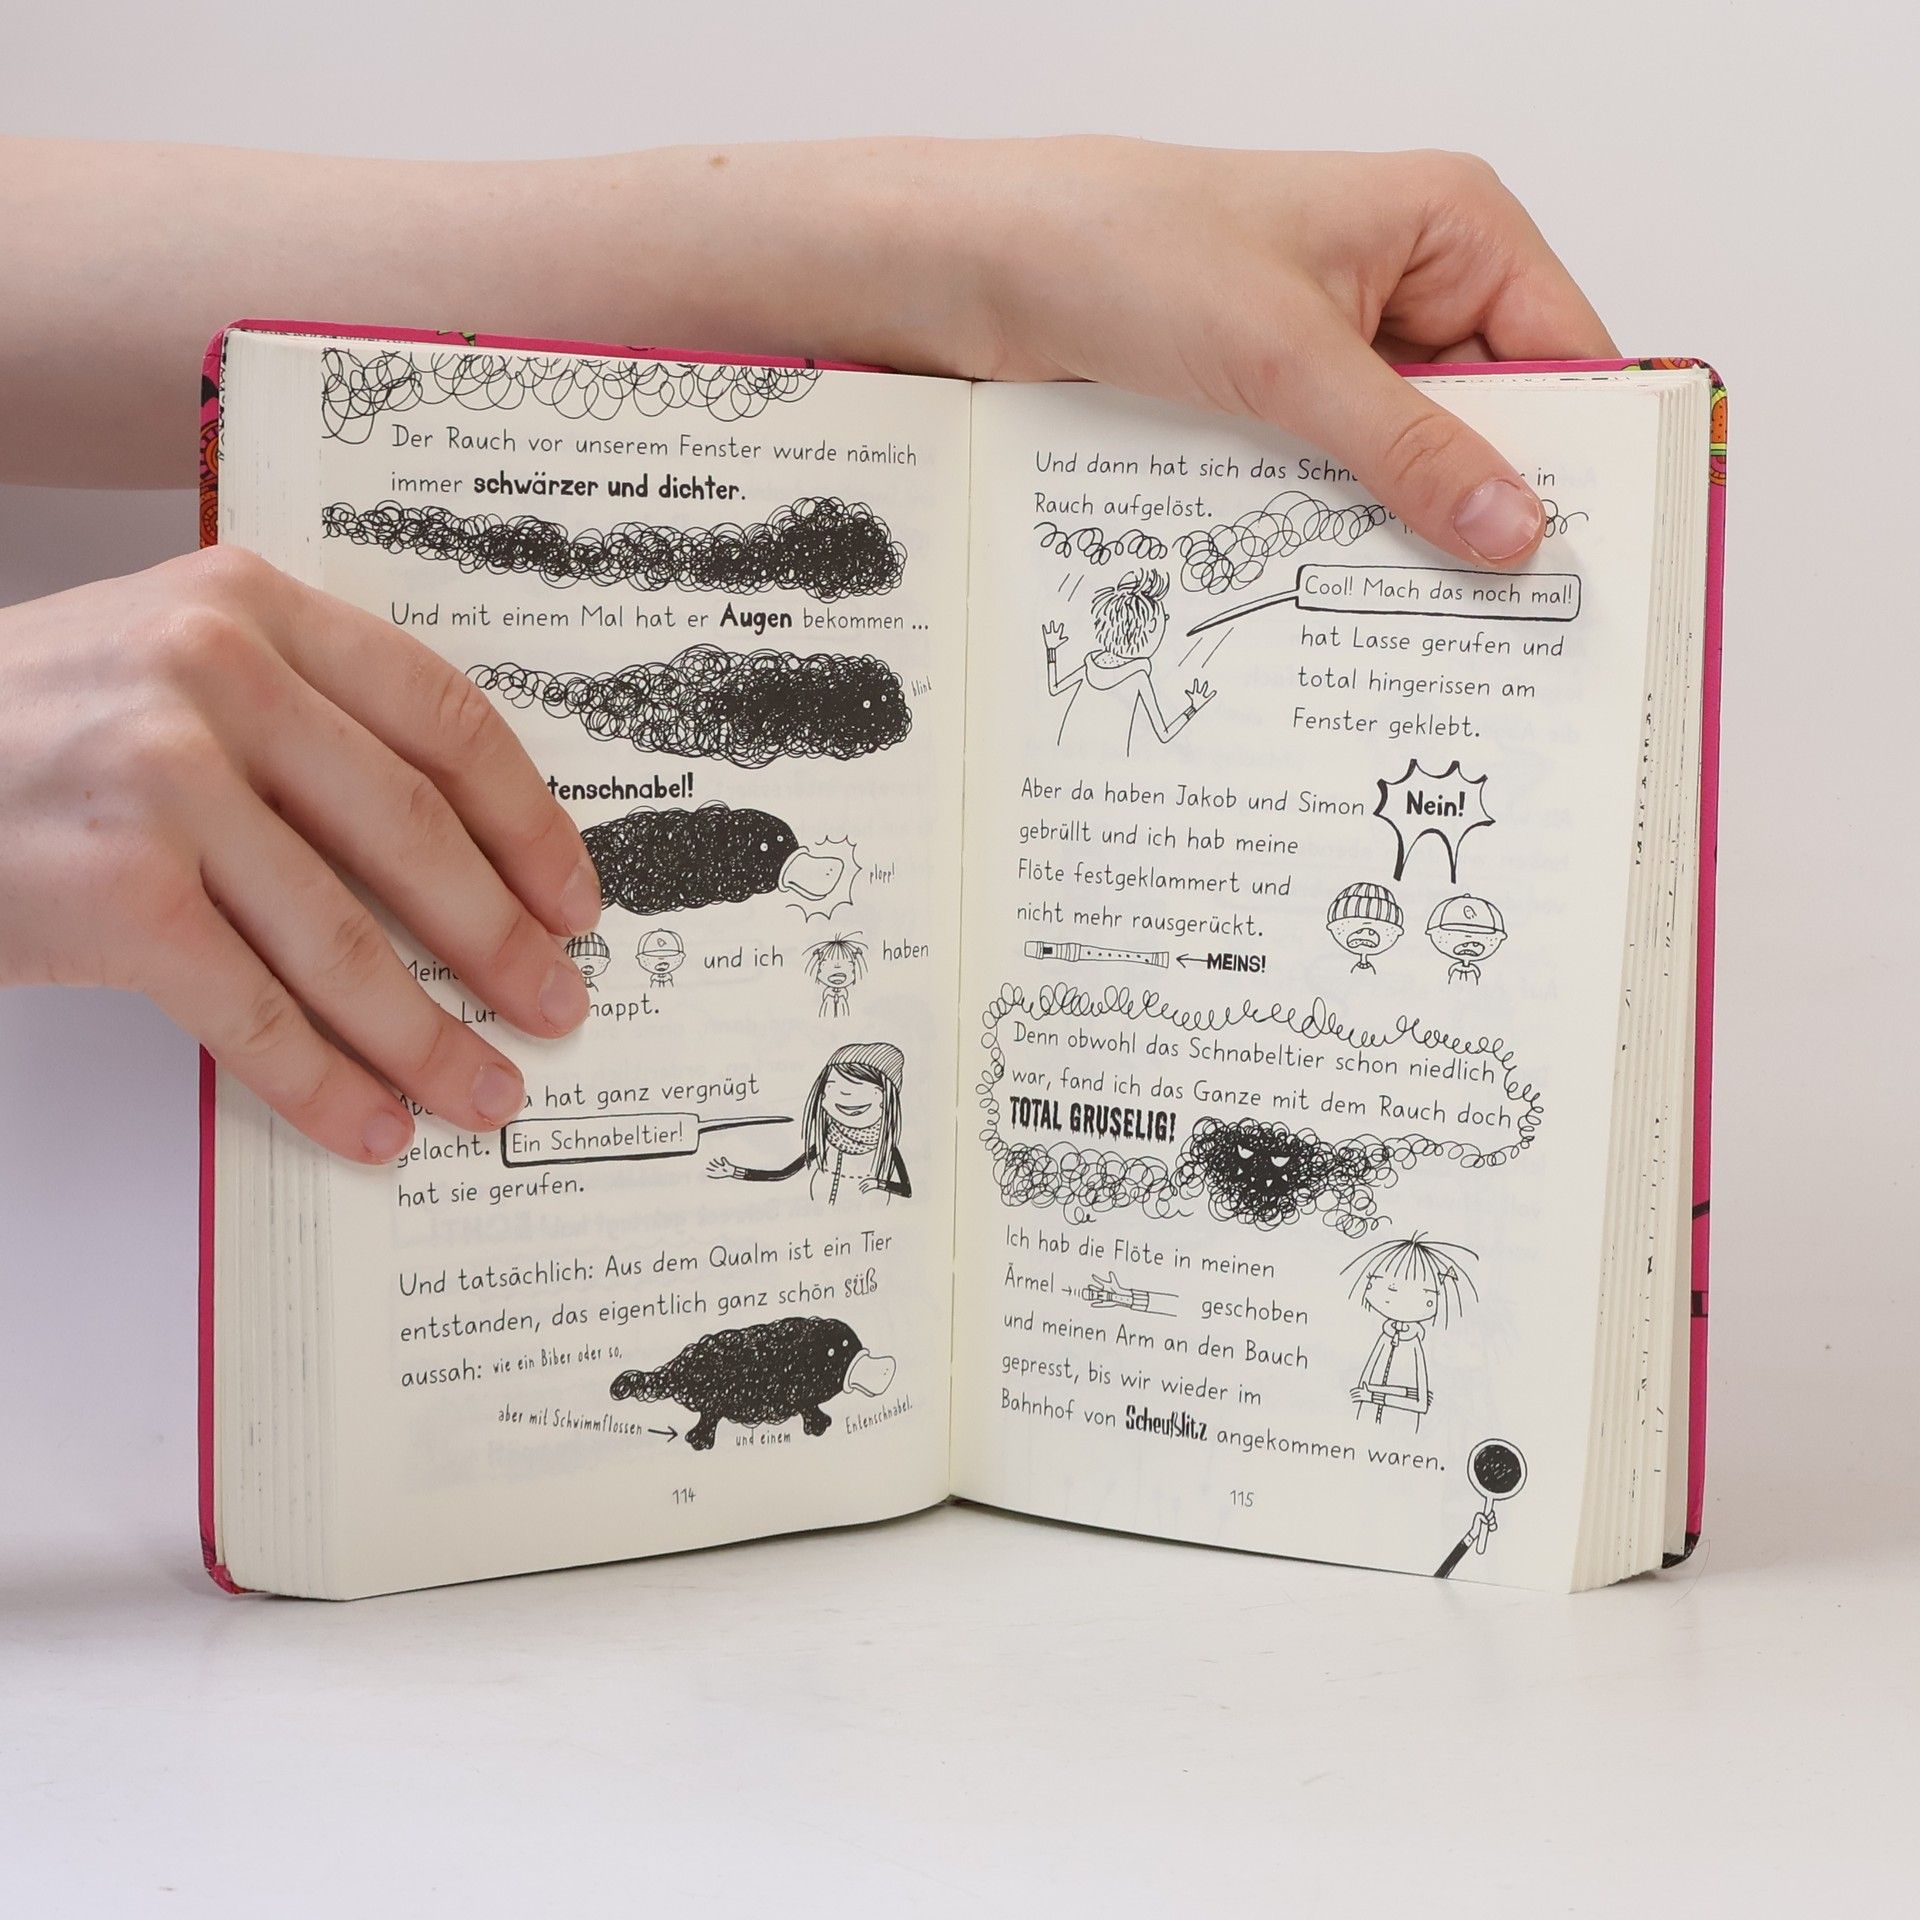 Der Rauch vor unserem Fenster wurde nämlich
immer schwärzer und dichter.
Und mit einem Mal hat er Augen bekommen ...
blink
tenschnabel!
plopp!
und ich haben
happt.
hat ganz vergnügt
gelacht. Ein Schnabeltier!
hat sie gerufen.
Und tatsächlich: Aus dem Qualm ist ein Tier
entstanden, das eigentlich ganz schön süß
aussah: wie ein Biber oder so,
aber mit Schwimmflossen
und einem
Entenschnabel.
114
Und dann hat sich das in
Rauch aufgelöst.
Cool! Mach das noch mal!
hat Lasse gerufen und
total hingerissen am
Fenster geklebt.
Aber da haben Jakob und Simon Nein!
gebrüllt und ich hab meine
Flöte festgeklammert und
nicht mehr rausgerückt.
MEINS!
Denn obwohl das Schnabeltier schon niedlich
war, fand ich das Ganze mit dem Rauch doch
TOTAL GRUSELIG!
Ich hab die Flöte in meinen
Ärmel geschoben
und meinen Arm an den Bauch
gepresst, bis wir wieder im
Bahnhof von Scheußlitz angekommen waren.
115